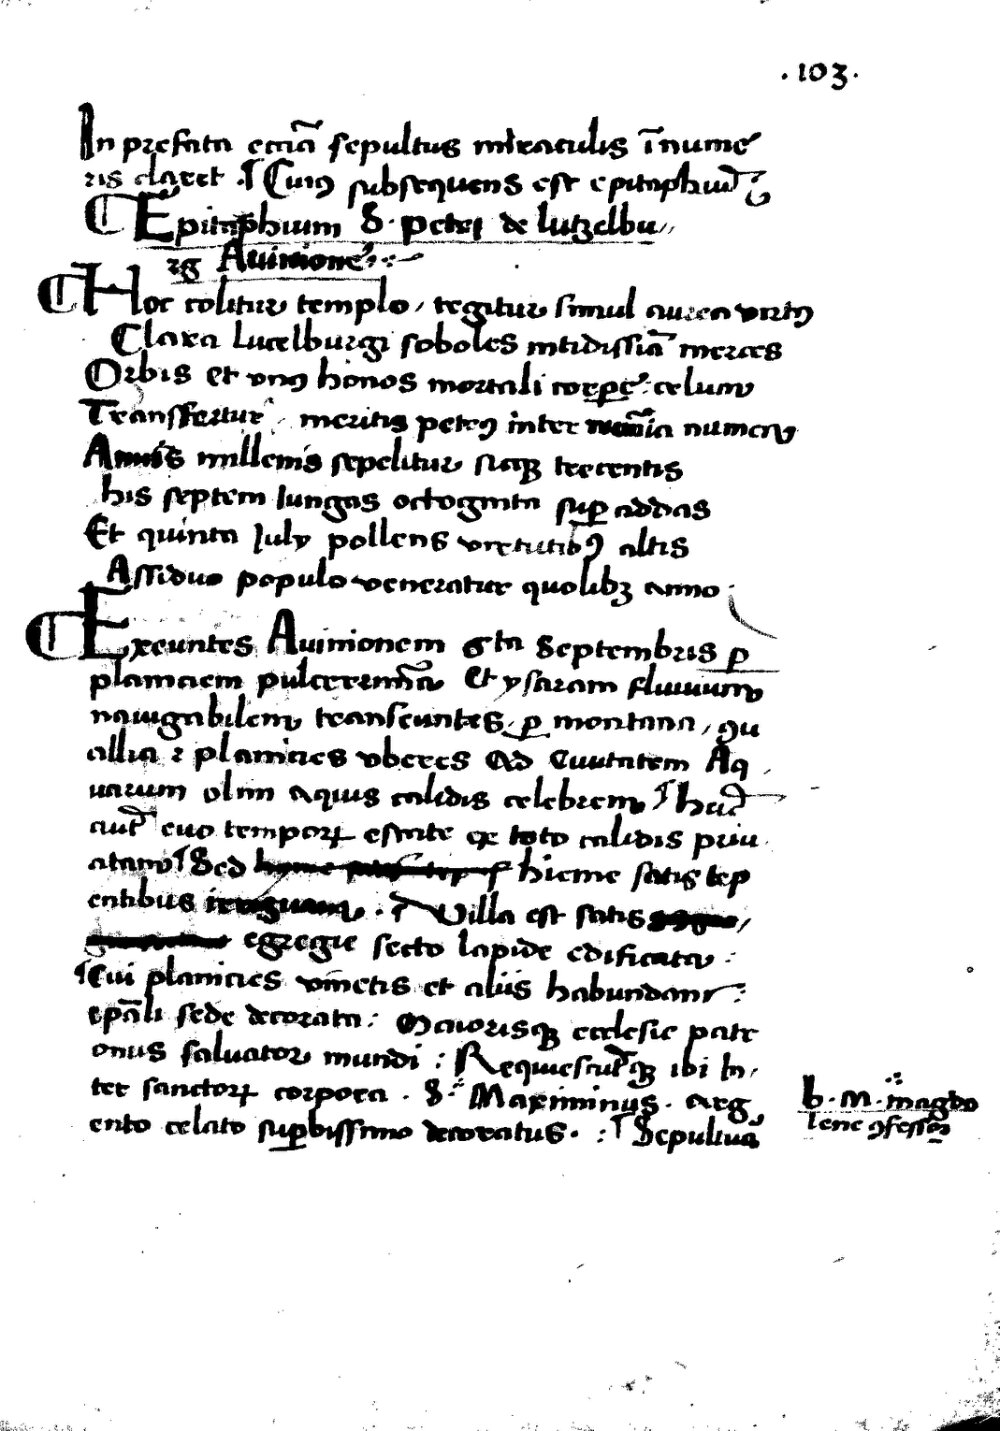 .103.
In prefata eccīa sepultus miraculis īnume
ris claret . Cuiꝰ subsequens est epitaphiū :
Epitaphium S. Petri de lutzelbu
rg Auinione :
Hoc colitur templo, tegitur simul aurea virtꝰ
Clara lucelburgi soboles nitidissiā merces
Orbis et vnꝰ honos mortali corꝑe : celum
Transfertur, meritis petrꝰ inter numeru
Annis millenis sepelitur sicqꝫ trecentis
his septem iungas octoginta suꝑ addas
Et quinta July pollens virtutibꝰ altis
Assiduo populo veneratur quolibꝫ anno .
Exeuntes Auinionem 6ta Septembris ꝑ
planiciem pulcerrimā Et ysaram fluuium
nauigabilem transeuntes, ꝑ montana, ꝯu
allia ⁊ planicies vberes Ad Ciuitatem Aq
uarum olim aquis calidis celebrem hac
aūt euo temporꝝ estate ex toto calidis priu
atam Sed hieme satis tep
entibus . Villa est satis
egregie secto lapide edificata :
Cui planicies vinetis et aliis habundans :
epāli sede decorata : Maiorisqꝫ ecclesie patr
onus saluator mundi : Requiescūtqꝫ ibi in
ter sanctorꝝ corpora . S. Maximinus . arg
ento celato suꝑbissimo decoratus . : Sepultus
b. M. magda
lene ꝯfessor